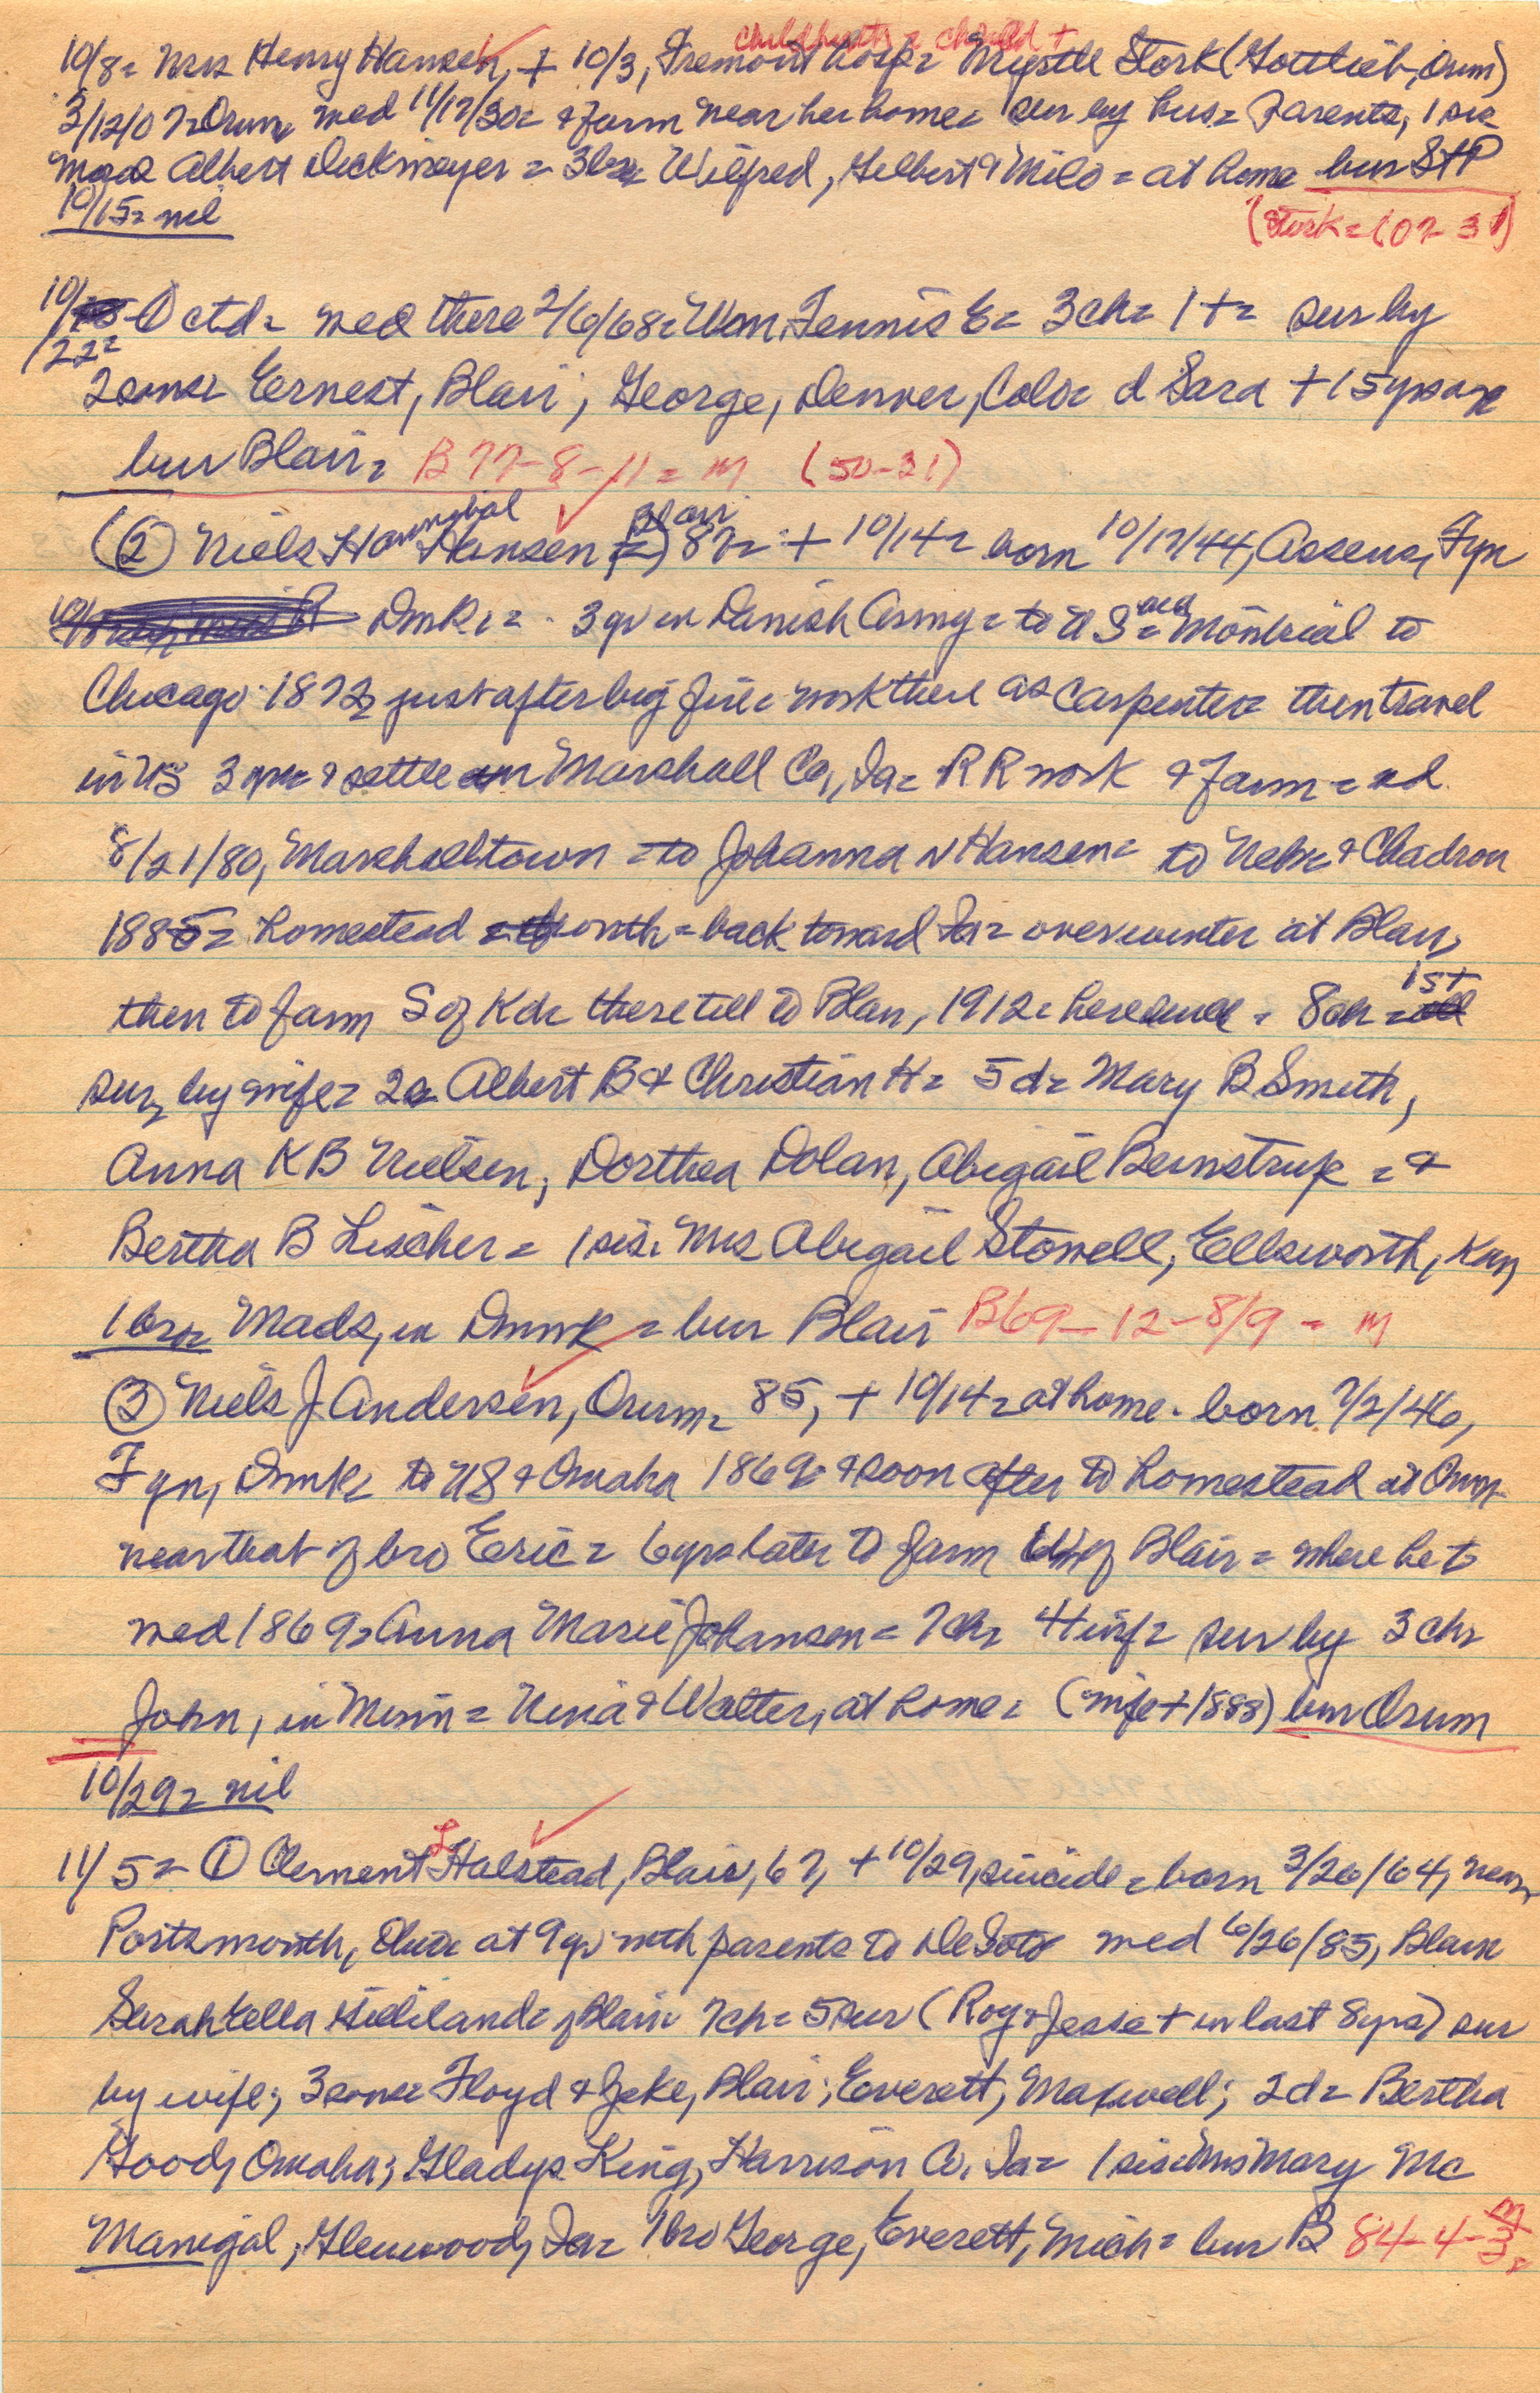 childbirth = child +
10/8= Mrs Henry Hansen, + 10/3, Fremont hosp= Myrtle Stork (Gottlieb, Orum)
3/12/07= Orum, med 11/12/30= & farm near her home= sur by hus= parents, 1 sis
Albert Dickmeyer = 3br= Wilfred, Gilbert & Milo = at home bur StP
10/15= nil
(Stork = (07-31)
10/22= ① ctd= med there 2/6/68= Wm Tennis E= 3ch= 1+= sur by
2sons= Ernest, Blair; George, Denver, Colo= d Sara + 15 yrs
bur Blair= B 77-8-11= M (50-31)
② Niels Hansen Blair 87= + 10/14= born 10/17/44, Assens, Fyn
Dmk,= 3 yr in Danish Army= to US= via Montreal to
Chicago 1872 just after big fire= work there as carpenter= then travel
in US 3 yrs= & settle in Marshall Co, Ia= RR work & farm = md
8/21/80, Marshalltown = to Johanna N Hansen= to Nebr & Chadron
1885= homestead = back toward Ia= overwinter at Blair,
then to farm S of Kd= there till to Blair, 1912= here since = 8ch = 1st
sur by wife= 2s Albert B & Christian H= 5d= Mary B Smith,
Anna KB Nielsen, Dorthea Dolan, Abigail Bernstrup = &
Bertha B Lischer = 1sis= Mrs Abigail Stowell, Ellsworth, Kan,
1bro= Mads, in Dmrk = bur Blair B69-12-8/9 = M
③ Niels J Andersen, Orum= 85, + 10/14= at home - born 7/2/46,
Fyn, Dmk= to US & Omaha 1869= & soon after to homestead at Orum
near that of bro Eric = 6 yrs later to farm of Blair = where he +
med 1869= Anna Marie Johansen = 7ch= 4 inf= sur by 3 ch=
John, in Minn= Nina & Walter, at home= (wife + 1888) bur Orum
10/29= nil
11/5= ① Clement L Halstead, Blair, 67, + 10/29, suicide = born 3/26/64, near
Portsmouth, Ohio= at 9 yr with parents to DeSoto med 6/26/85, Blair
Sarah Ella Hilliland= of Blair= 7ch= 5 sur (Roy & Jesse + in last 8 yrs) sur
by wife; 3 sons= Floyd & Zeke, Blair; Everett, Maxwell; 2d= Bertha
Goody Omaha; Gladys King, Harrison Co. Ia= 1 sis= Mrs Mary Mc
Manigal, Glenwood, Ia= 1bro George, Everett, Mich= bur B 84-4-3